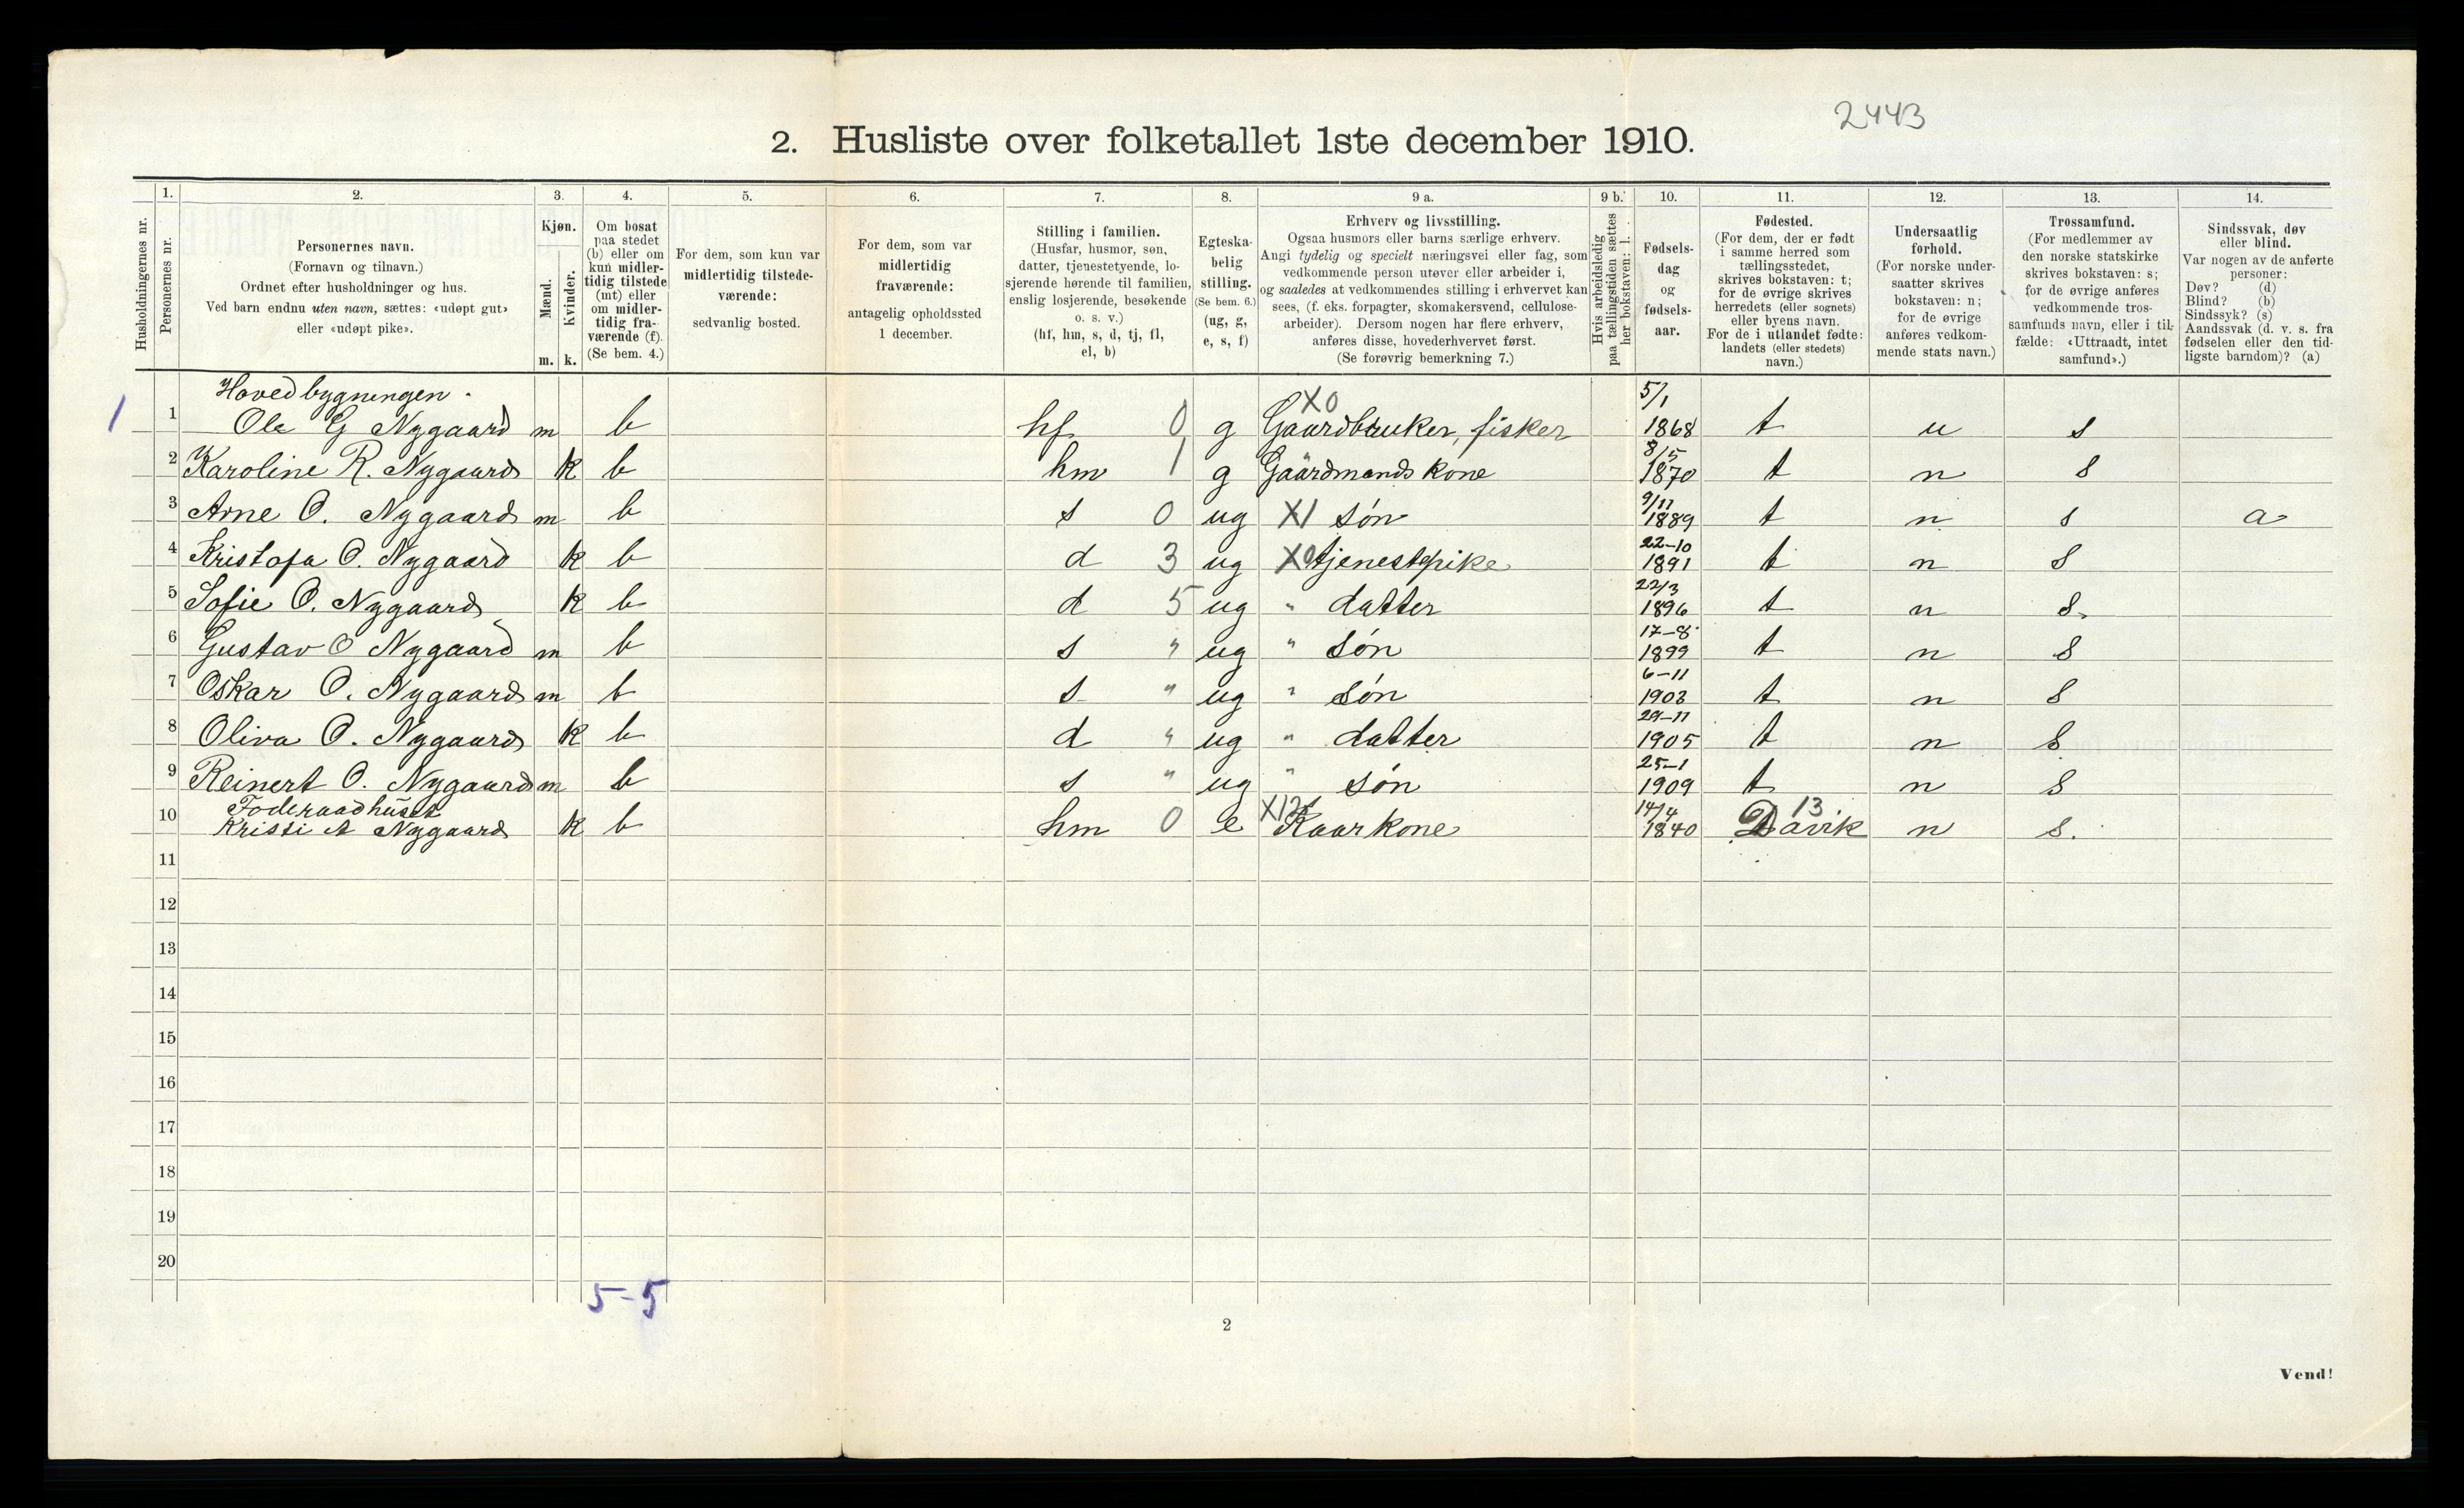 2443
2. Husliste over folketallet 1ste december 1910.
Husholdningernes nr.
1.
Personernes nr.
2.
Personernes navn.
(Fornavn og tilnavn.)
Ordnet efter husholdninger og hus.
Ved barn endnu uten navn, sættes: «udøpt gut»
eller «udøpt pike».
3.
Kjøn.
Mænd.
Kvinder.
m. k.
4.
Om bosat
paa stedet
(b) eller om
kun midler-
tidig tilstede
(mt) eller
om midler-
tidig fra-
værende (f).
(Se bem. 4.)
5.
For dem, som kun var
midlertidig tilstede-
værende:
sedvanlig bosted.
6.
For dem, som var
midlertidig
fraværende:
antagelig opholdssted
1 december.
7.
Stilling i familien.
(Husfar, husmor, søn,
datter, tjenestetyende, lo-
sjerende hørende til familien,
enslig losjerende, besøkende
o. s. v.)
(hf, hm, s, d, tj, fl,
el, b)
8.
Egteska-
belig
stilling.
(Se bem. 6.)
(ug, g,
e, s, f)
9 a.
Erhverv og livsstilling.
Ogsaa husmors eller barns særlige erhverv.
Angi tydelig og specielt næringsvei eller fag, som
vedkommende person utøver eller arbeider i,
og saaledes at vedkommendes stilling i erhvervet kan
sees, (f. eks. forpagter, skomakersvend, cellulose-
arbeider). Dersom nogen har flere erhverv,
anføres disse, hovederhvervet først.
(Se forøvrig bemerkning 7.)
9 b.
Hvis arbeidsledig
paa tællingstiden sættes
her bokstaven: l.
10.
Fødsels-
dag
og
fødsels-
aar.
11.
Fødested.
(For dem, der er født
i samme herred som
tællingsstedet,
skrives bokstaven: t;
for de øvrige skrives
herredets (eller sognets)
eller byens navn.
For de i utlandet fødte:
landets (eller stedets)
navn.)
12.
Undersaatlig
forhold.
(For norske under-
saatter skrives
bokstaven: n;
for de øvrige
anføres vedkom-
mende stats navn.)
13.
Trossamfund.
(For medlemmer av
den norske statskirke
skrives bokstaven: s;
for de øvrige anføres
vedkommende tros-
samfunds navn, eller i til-
fælde: «Uttraadt, intet
samfund».)
14.
Sindssvak, døv
eller blind.
Var nogen av de anførte
personer:
Døv? (d)
Blind? (b)
Sindssyk? (s)
Aandssvak (d. v. s. fra
fødselen eller den tid-
ligste barndom)? (a)
Hovedbygningen. X0 5/1
1 1 Ole G Nygaard m b hf 0 g Gaardbruker, fisker 1868 t u s
2 Karoline R. Nygaard k b hm 1 g Gaardmands kone 8/5 1870 t n s
3 Arne O. Nygaard m b s 0 ug X1 søn 9/11 1889 t n s a
4 Kristofa O. Nygaard k b d 3 ug X0 tjenestepike 22-10 1891 t n s
5 Sofie O. Nygaard k b d 5 ug " datter 22/3 1896 t n s.
6 Gustav O Nygaard m b s " ug " søn 17-8 1899 t n s
7 Oskar O. Nygaard m b s " ug " søn 6-11 1903 t n s
8 Oliva O. Nygaard k b d " ug " datter 29-11 1905 t n s
9 Reinert O. Nygaard m b s " ug " søn 25-1 1909 t n s
Foderaadhuset X12 14/4 13
10 Kristi A Nygaard k b hm 0 e Kaarkone 1840 Davik n s.
11
12
13
14
15
16
17
18
19
20
5-5
2
Vend!